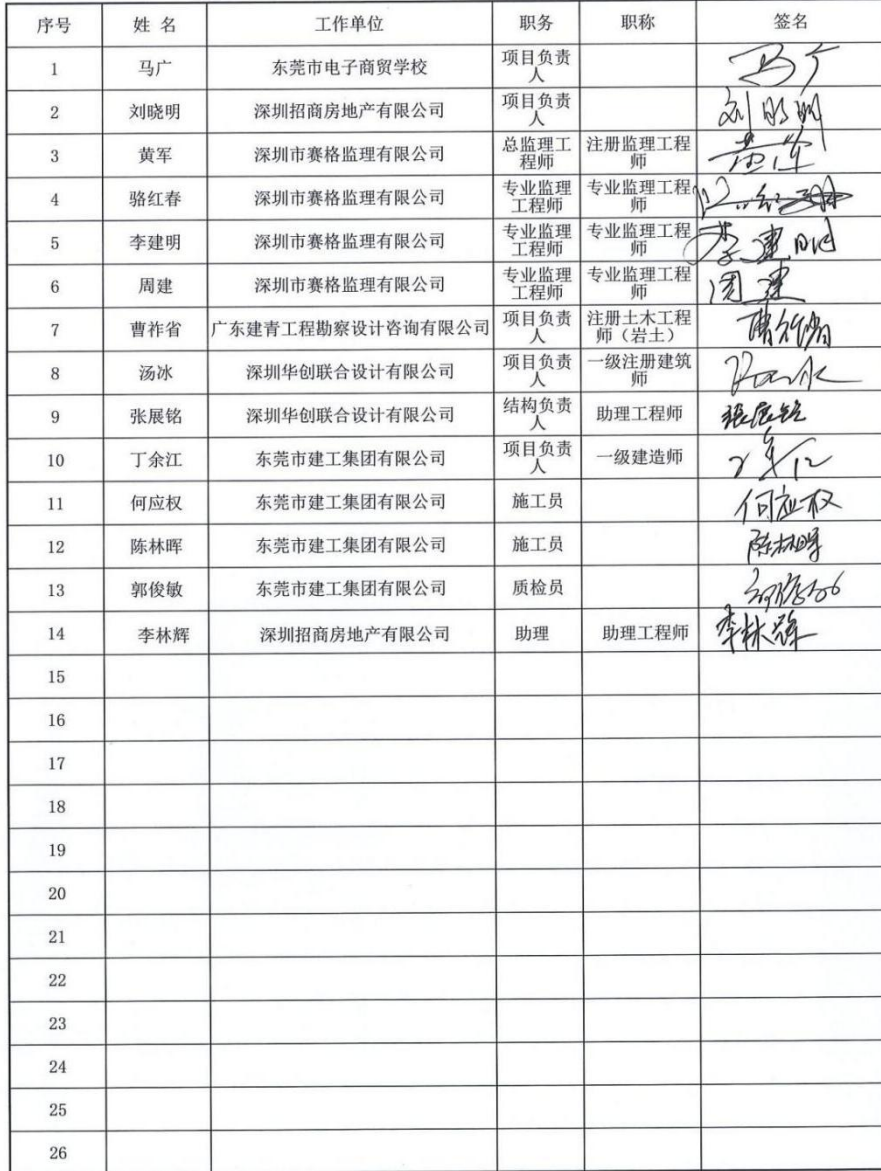 序号 姓 名 工作单位 职务 职称 签名
1 马广 东莞市电子商贸学校 项目负责人 马广
2 刘晓明 深圳招商房地产有限公司 项目负责人 刘晓明
3 黄军 深圳市赛格监理有限公司 总监理工程师 注册监理工程师 黄军
4 骆红春 深圳市赛格监理有限公司 专业监理工程师 专业监理工程师
5 李建明 深圳市赛格监理有限公司 专业监理工程师 专业监理工程师 李建明
6 周建 深圳市赛格监理有限公司 专业监理工程师 专业监理工程师 周建
7 曹祚省 广东建青工程勘察设计咨询有限公司 项目负责人 注册土木工程师（岩土） 曹祚省
8 汤冰 深圳华创联合设计有限公司 项目负责人 一级注册建筑师
9 张展铭 深圳华创联合设计有限公司 结构负责人 助理工程师 张展铭
10 丁余江 东莞市建工集团有限公司 项目负责人 一级建造师
11 何应权 东莞市建工集团有限公司 施工员 何应权
12 陈林晖 东莞市建工集团有限公司 施工员 陈林晖
13 郭俊敏 东莞市建工集团有限公司 质检员
14 李林辉 深圳招商房地产有限公司 助理 助理工程师 李林辉
15
16
17
18
19
20
21
22
23
24
25
26